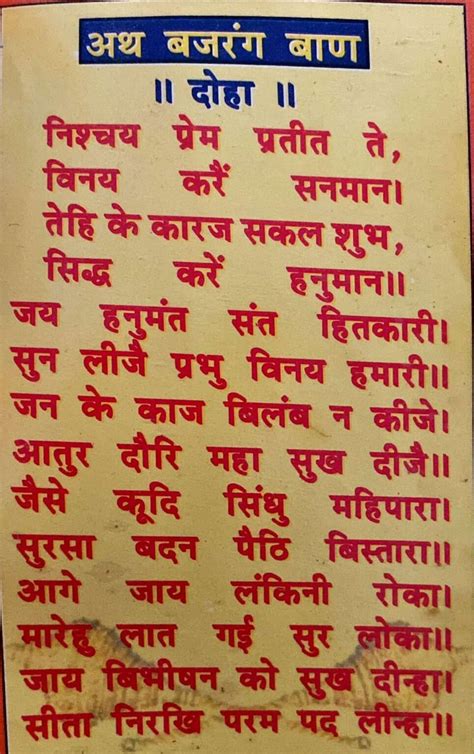 अथ बजरंग बाण
॥ दोहा ॥
निश्चय प्रेम प्रतीत ते,
विनय करैं सनमान।
तेहि के कारज सकल शुभ,
सिद्ध करें हनुमान॥
जय हनुमंत संत हितकारी।
सुन लीजै प्रभु विनय हमारी॥
जन के काज बिलंब न कीजे।
आतुर दौरि महा सुख दीजै॥
जैसे कूदि सिंधु महिपारा।
सुरसा बदन पैठि बिस्तारा॥
आगे जाय लंकिनी रोका।
मारेहु लात गई सुर लोका॥
जाय बिभीषन को सुख दीन्हा।
सीता निरखि परम पद लीन्हा॥